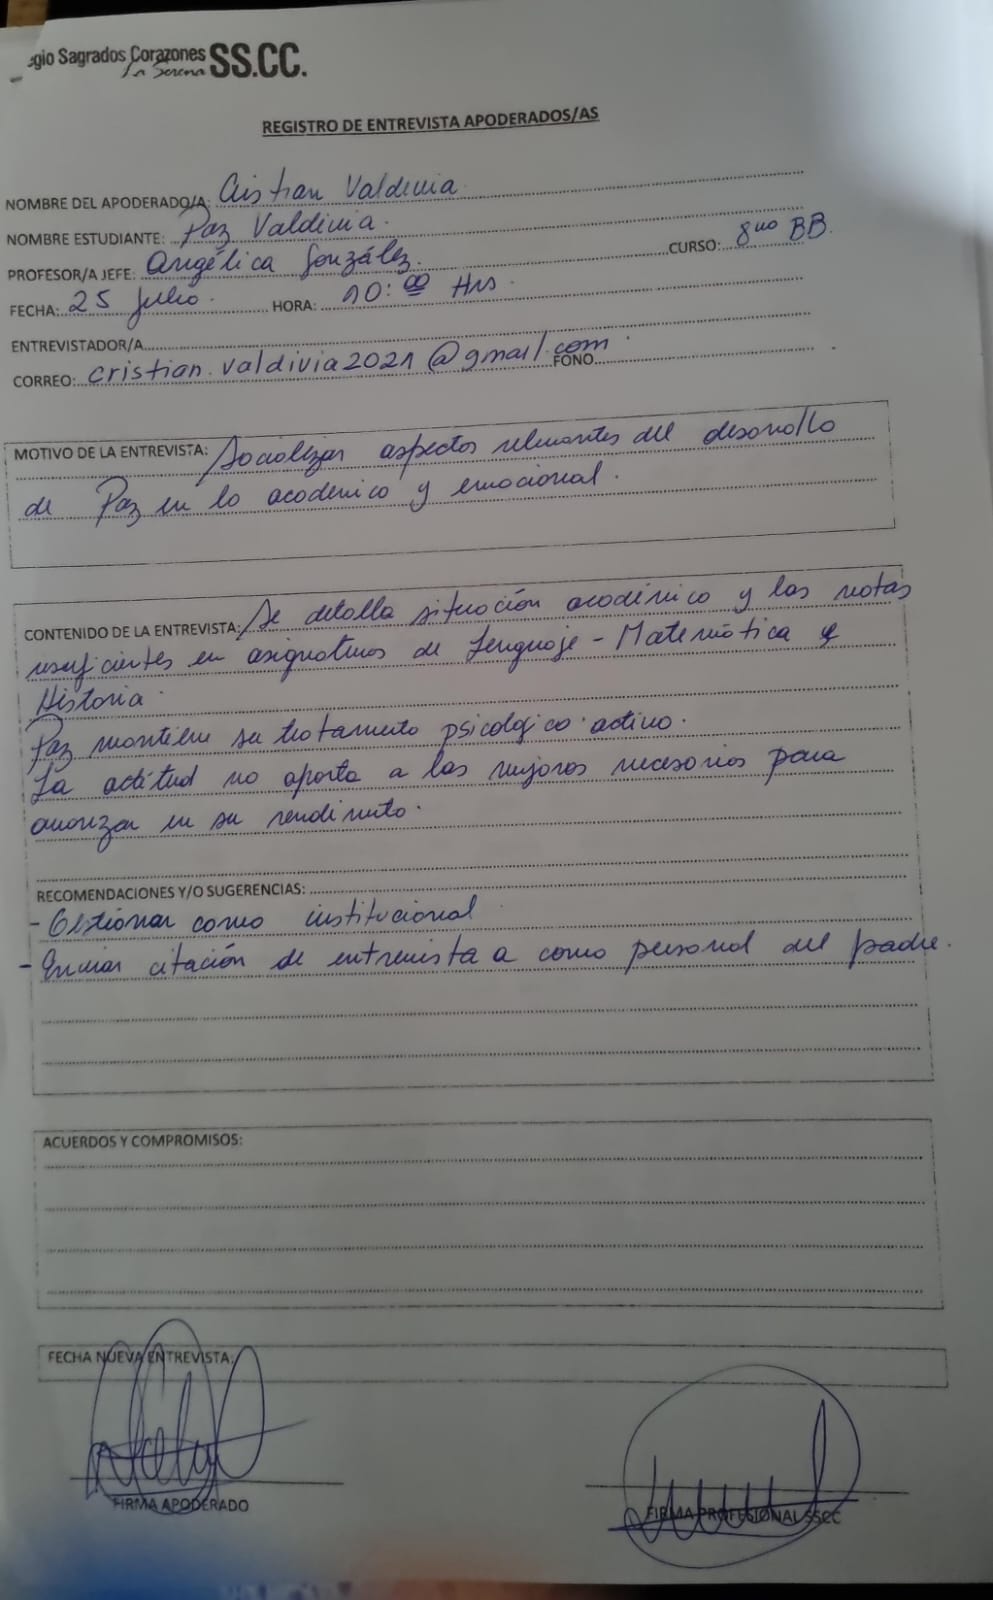 gio Sagrados Corazones SS.CC.
La Serena
REGISTRO DE ENTREVISTA APODERADOS/AS
NOMBRE DEL APODERADO/A: Cristian Valdivia
NOMBRE ESTUDIANTE: Paz Valdivia.
PROFESOR/A JEFE: Angélica González. CURSO: 8vo BB.
FECHA: 25 Julio. HORA: 10:00 Hrs.
ENTREVISTADOR/A
CORREO: cristian.valdivia2021@gmail.com FONO
MOTIVO DE LA ENTREVISTA: Socializar aspectos relevantes del desarrollo
de Paz en lo académico y emocional.
CONTENIDO DE LA ENTREVISTA: Se detalla situación académico y las notas
insuficientes en asignaturas de Lenguaje - Matemática y
Historia.
Paz mantiene su tratamiento psicológico activo.
La actitud no aporta a las mejoras necesarias para
avanzar en su rendimiento.
RECOMENDACIONES Y/O SUGERENCIAS:
- Gestionar correo institucional
- Enviar citación de entrevista a correo personal del padre.
ACUERDOS Y COMPROMISOS:
FECHA NUEVA ENTREVISTA:
FIRMA APODERADO
FIRMA PROFESIONAL SSCC